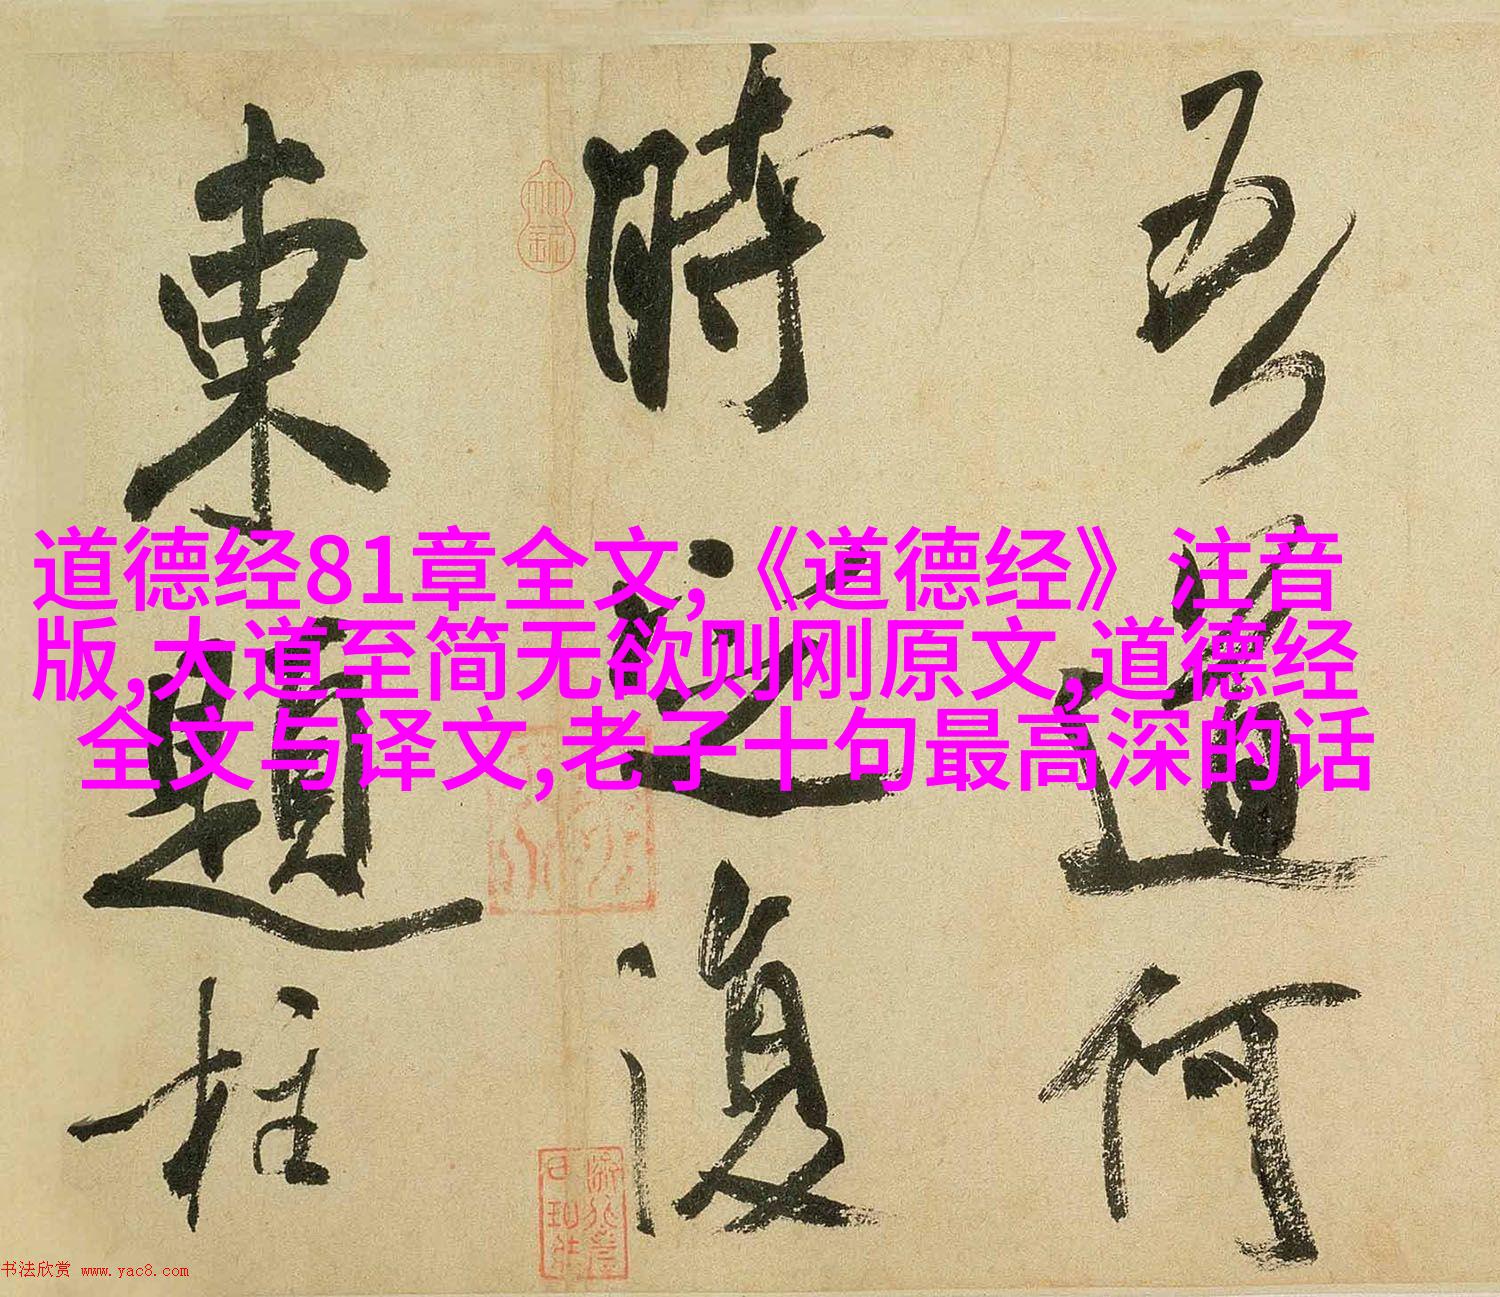 吾道何
時之復
東題柱
道德经81章全文,《道德经》注音
版,大道至简无欲则刚原文,道德经
全文与译文,老子十句最高深的话
书法欣赏 www.yac8.com